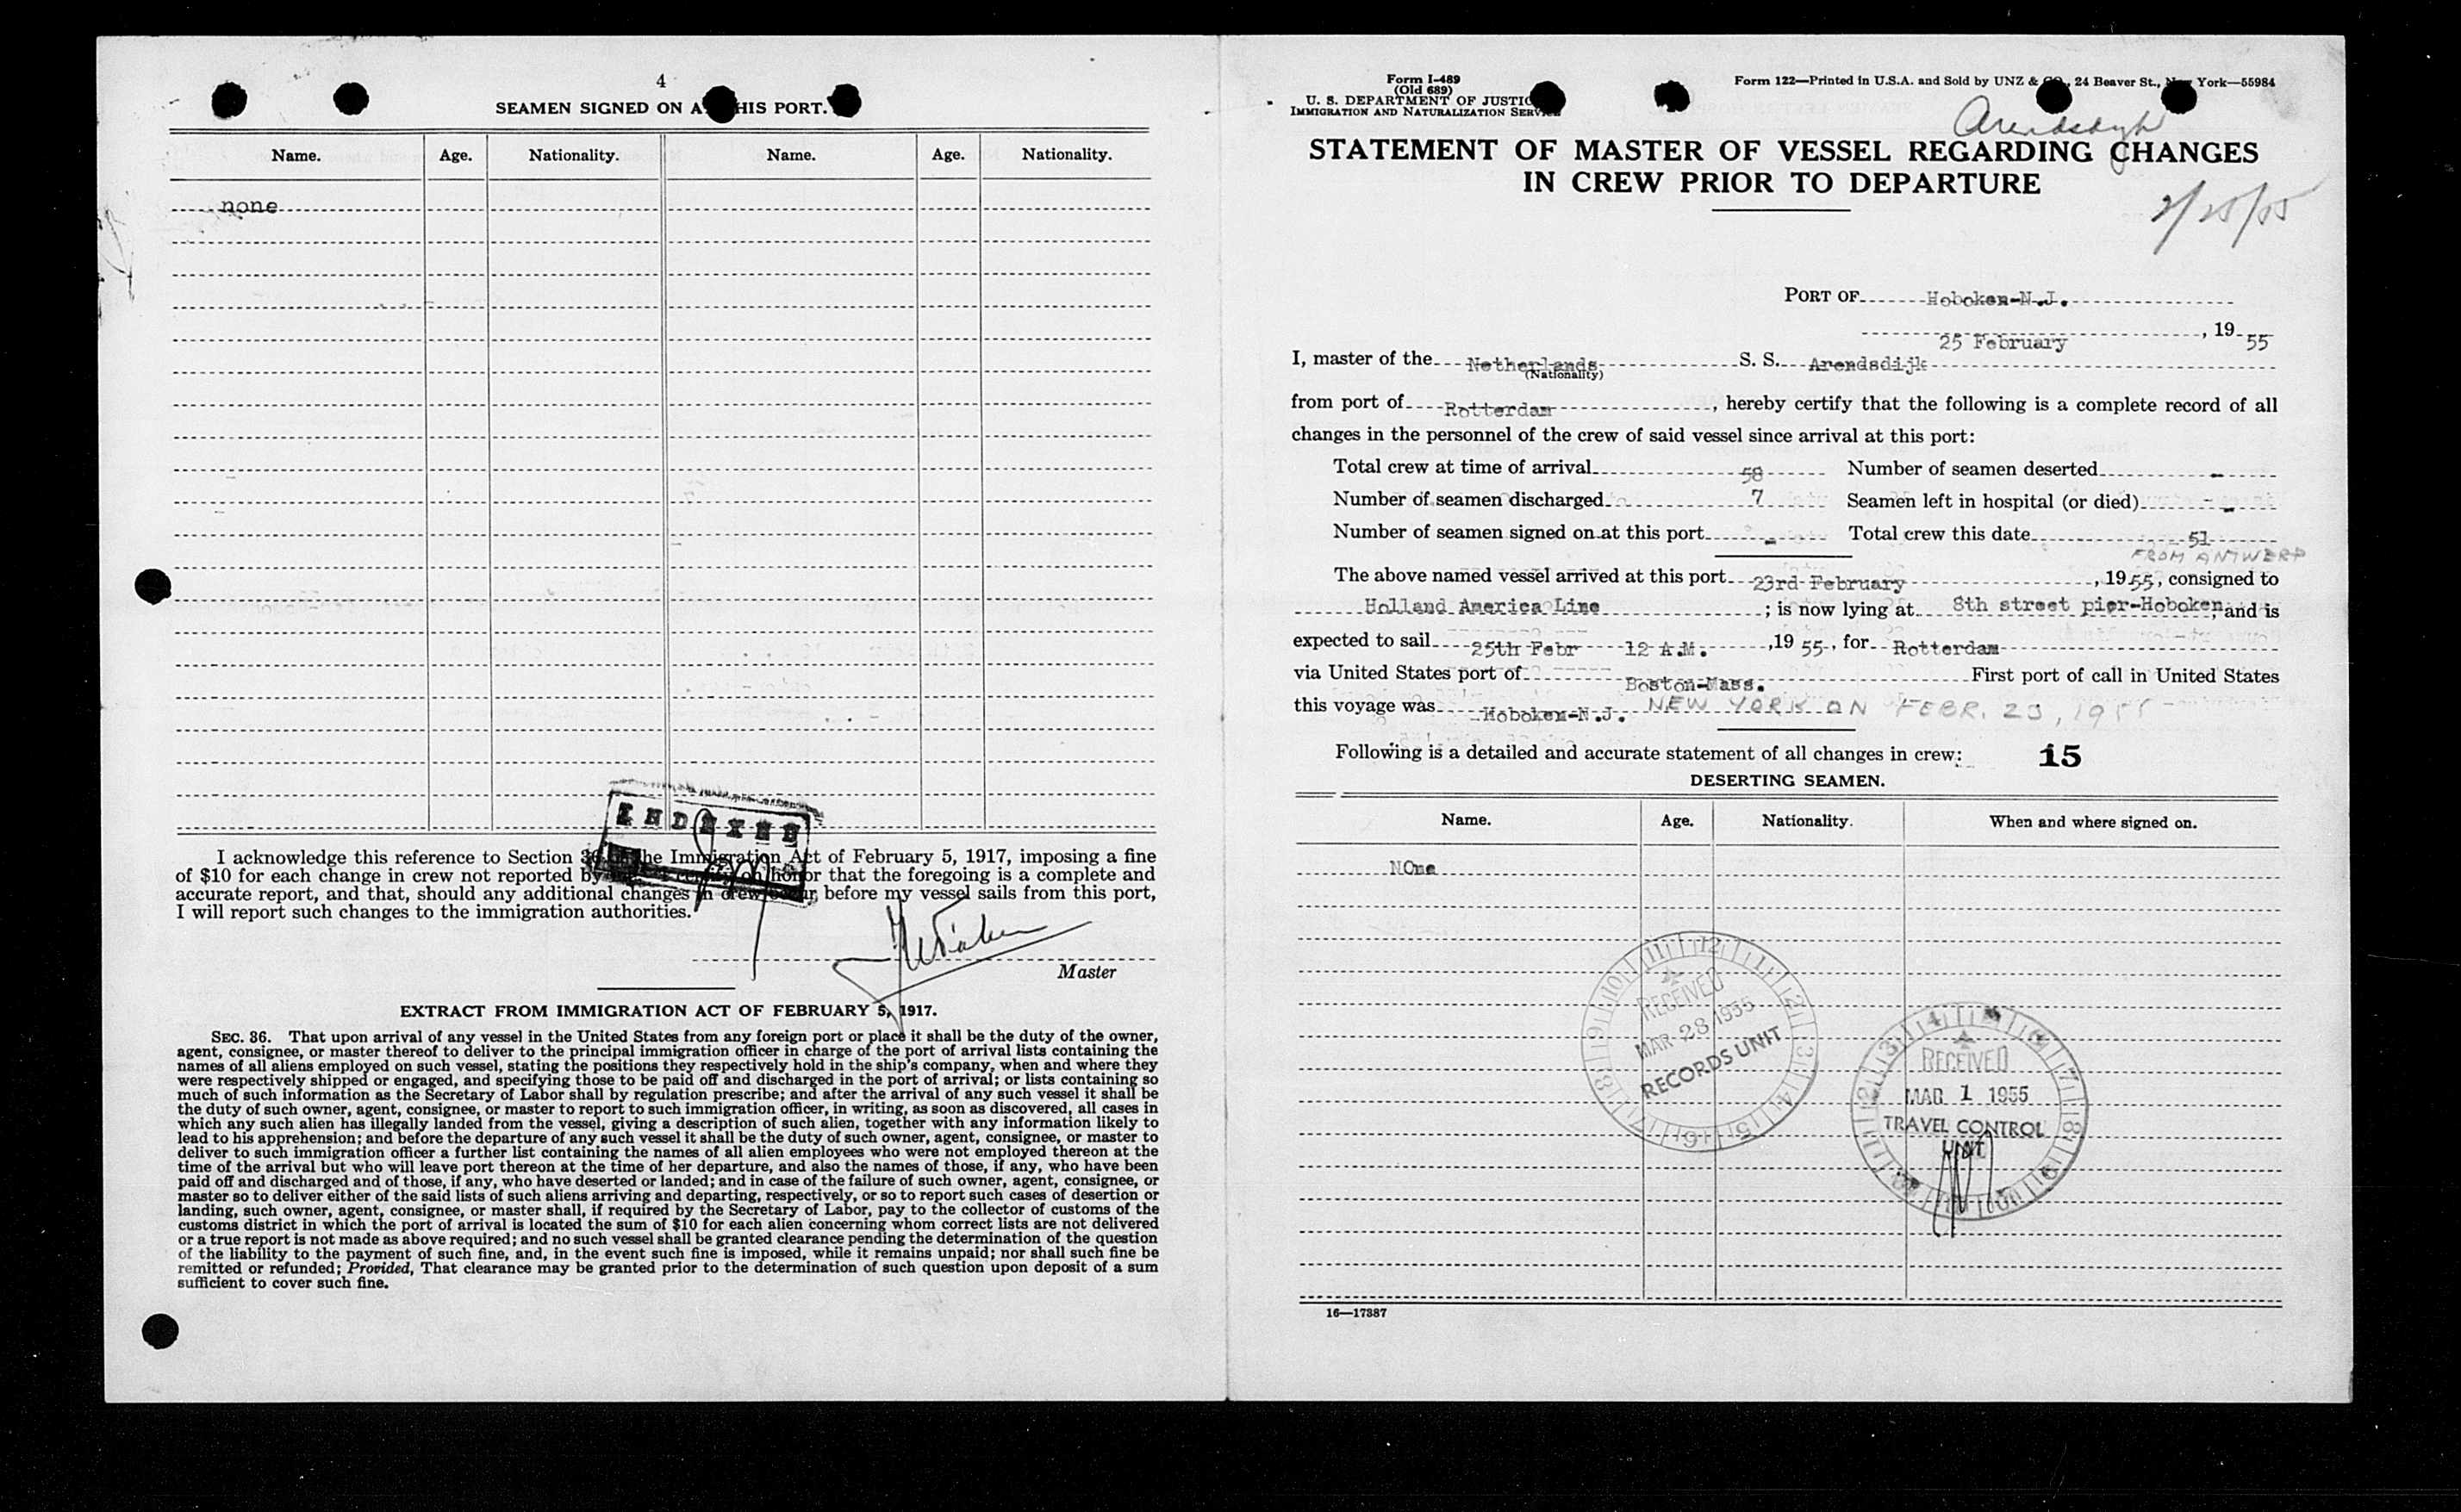 4
SEAMEN SIGNED ON AT THIS PORT.
Name. Age. Nationality. Name. Age. Nationality.
none
INDEXED
I acknowledge this reference to Section 36 of the Immigration Act of February 5, 1917, imposing a fine
of $10 for each change in crew not reported by me. I certify on honor that the foregoing is a complete and
accurate report, and that, should any additional changes in crew occur, before my vessel sails from this port,
I will report such changes to the immigration authorities.
Master
EXTRACT FROM IMMIGRATION ACT OF FEBRUARY 5, 1917.
SEC. 36. That upon arrival of any vessel in the United States from any foreign port or place it shall be the duty of the owner,
agent, consignee, or master thereof to deliver to the principal immigration officer in charge of the port of arrival lists containing the
names of all aliens employed on such vessel, stating the positions they respectively hold in the ship's company, when and where they
were respectively shipped or engaged, and specifying those to be paid off and discharged in the port of arrival; or lists containing so
much of such information as the Secretary of Labor shall by regulation prescribe; and after the arrival of any such vessel it shall be
the duty of such owner, agent, consignee, or master to report to such immigration officer, in writing, as soon as discovered, all cases in
which any such alien has illegally landed from the vessel, giving a description of such alien, together with any information likely to
lead to his apprehension; and before the departure of any such vessel it shall be the duty of such owner, agent, consignee, or master to
deliver to such immigration officer a further list containing the names of all alien employees who were not employed thereon at the
time of the arrival but who will leave port thereon at the time of her departure, and also the names of those, if any, who have been
paid off and discharged and of those, if any, who have deserted or landed; and in case of the failure of such owner, agent, consignee, or
master so to deliver either of the said lists of such aliens arriving and departing, respectively, or so to report such cases of desertion or
landing, such owner, agent, consignee, or master shall, if required by the Secretary of Labor, pay to the collector of customs of the
customs district in which the port of arrival is located the sum of $10 for each alien concerning whom correct lists are not delivered
or a true report is not made as above required; and no such vessel shall be granted clearance pending the determination of the question
of the liability to the payment of such fine, and, in the event such fine is imposed, while it remains unpaid; nor shall such fine be
remitted or refunded; Provided, That clearance may be granted prior to the determination of such question upon deposit of a sum
sufficient to cover such fine.
Form I-489
(Old 689)
U. S. DEPARTMENT OF JUSTICE
IMMIGRATION AND NATURALIZATION SERVICE
Form 122—Printed in U.S.A. and Sold by UNZ & CO., 24 Beaver St., New York—55984
Arendsdyk
STATEMENT OF MASTER OF VESSEL REGARDING CHANGES
IN CREW PRIOR TO DEPARTURE
2/25/55
PORT OF Hoboken-N.J.
25 February, 19 55
I, master of the Netherlands S. S. Arendsdijk
(Nationality)
from port of Rotterdam, hereby certify that the following is a complete record of all
changes in the personnel of the crew of said vessel since arrival at this port:
Total crew at time of arrival 58 Number of seamen deserted -
Number of seamen discharged 7 Seamen left in hospital (or died) -
Number of seamen signed on at this port - Total crew this date 51
FROM ANTWERP
The above named vessel arrived at this port 23rd February, 1955, consigned to
Holland America Line; is now lying at 8th street pier-Hoboken, and is
expected to sail 25th Febr 12 A.M., 19 55, for Rotterdam
via United States port of Boston-Mass. First port of call in United States
this voyage was Hoboken-N.J. NEW YORK ON FEBR. 23, 1955
Following is a detailed and accurate statement of all changes in crew: 15
DESERTING SEAMEN.
Name. Age. Nationality. When and where signed on.
NOne
RECEIVED
MAR 28 1955
RECORDS UNIT
RECEIVED
MAR 1 1955
TRAVEL CONTROL
UNIT
16—17387